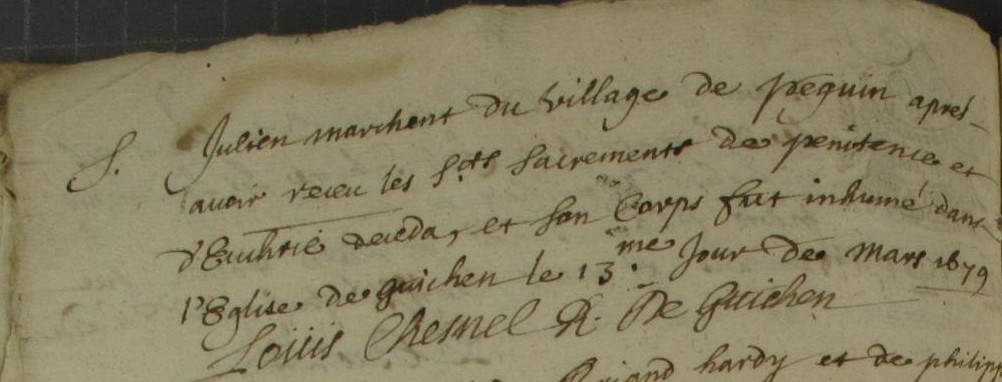 S. Julien marchent du village de peguin apres
avoir receu les S.cts sacrements de penitence et
d'Euchrie deceda, et son Corps fut inhumé dans
l'Eglise de guichen le 13.me Jour de Mars 1679
Louis Chesnel R. De Guichen
hardy et de philip